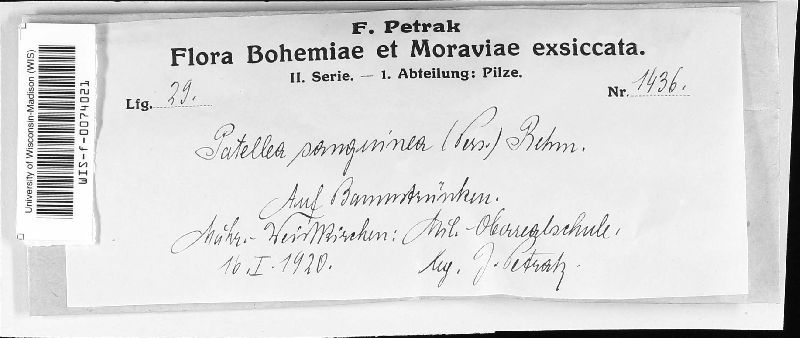 F. Petrak
Flora Bohemiae et Moraviae exsiccata.
II. Serie. — 1. Abteilung: Pilze.
Lfg. 29. Nr. 1436.
Patellea sanguinea (Pers.) Rehm.
Auf Baumstrünken.
Mähr.-Weißkirchen: Mil. Oberrealschule.
16. I. 1920. leg. J. Petrak.
University of Wisconsin-Madison (WIS)
WIS-f-0074021